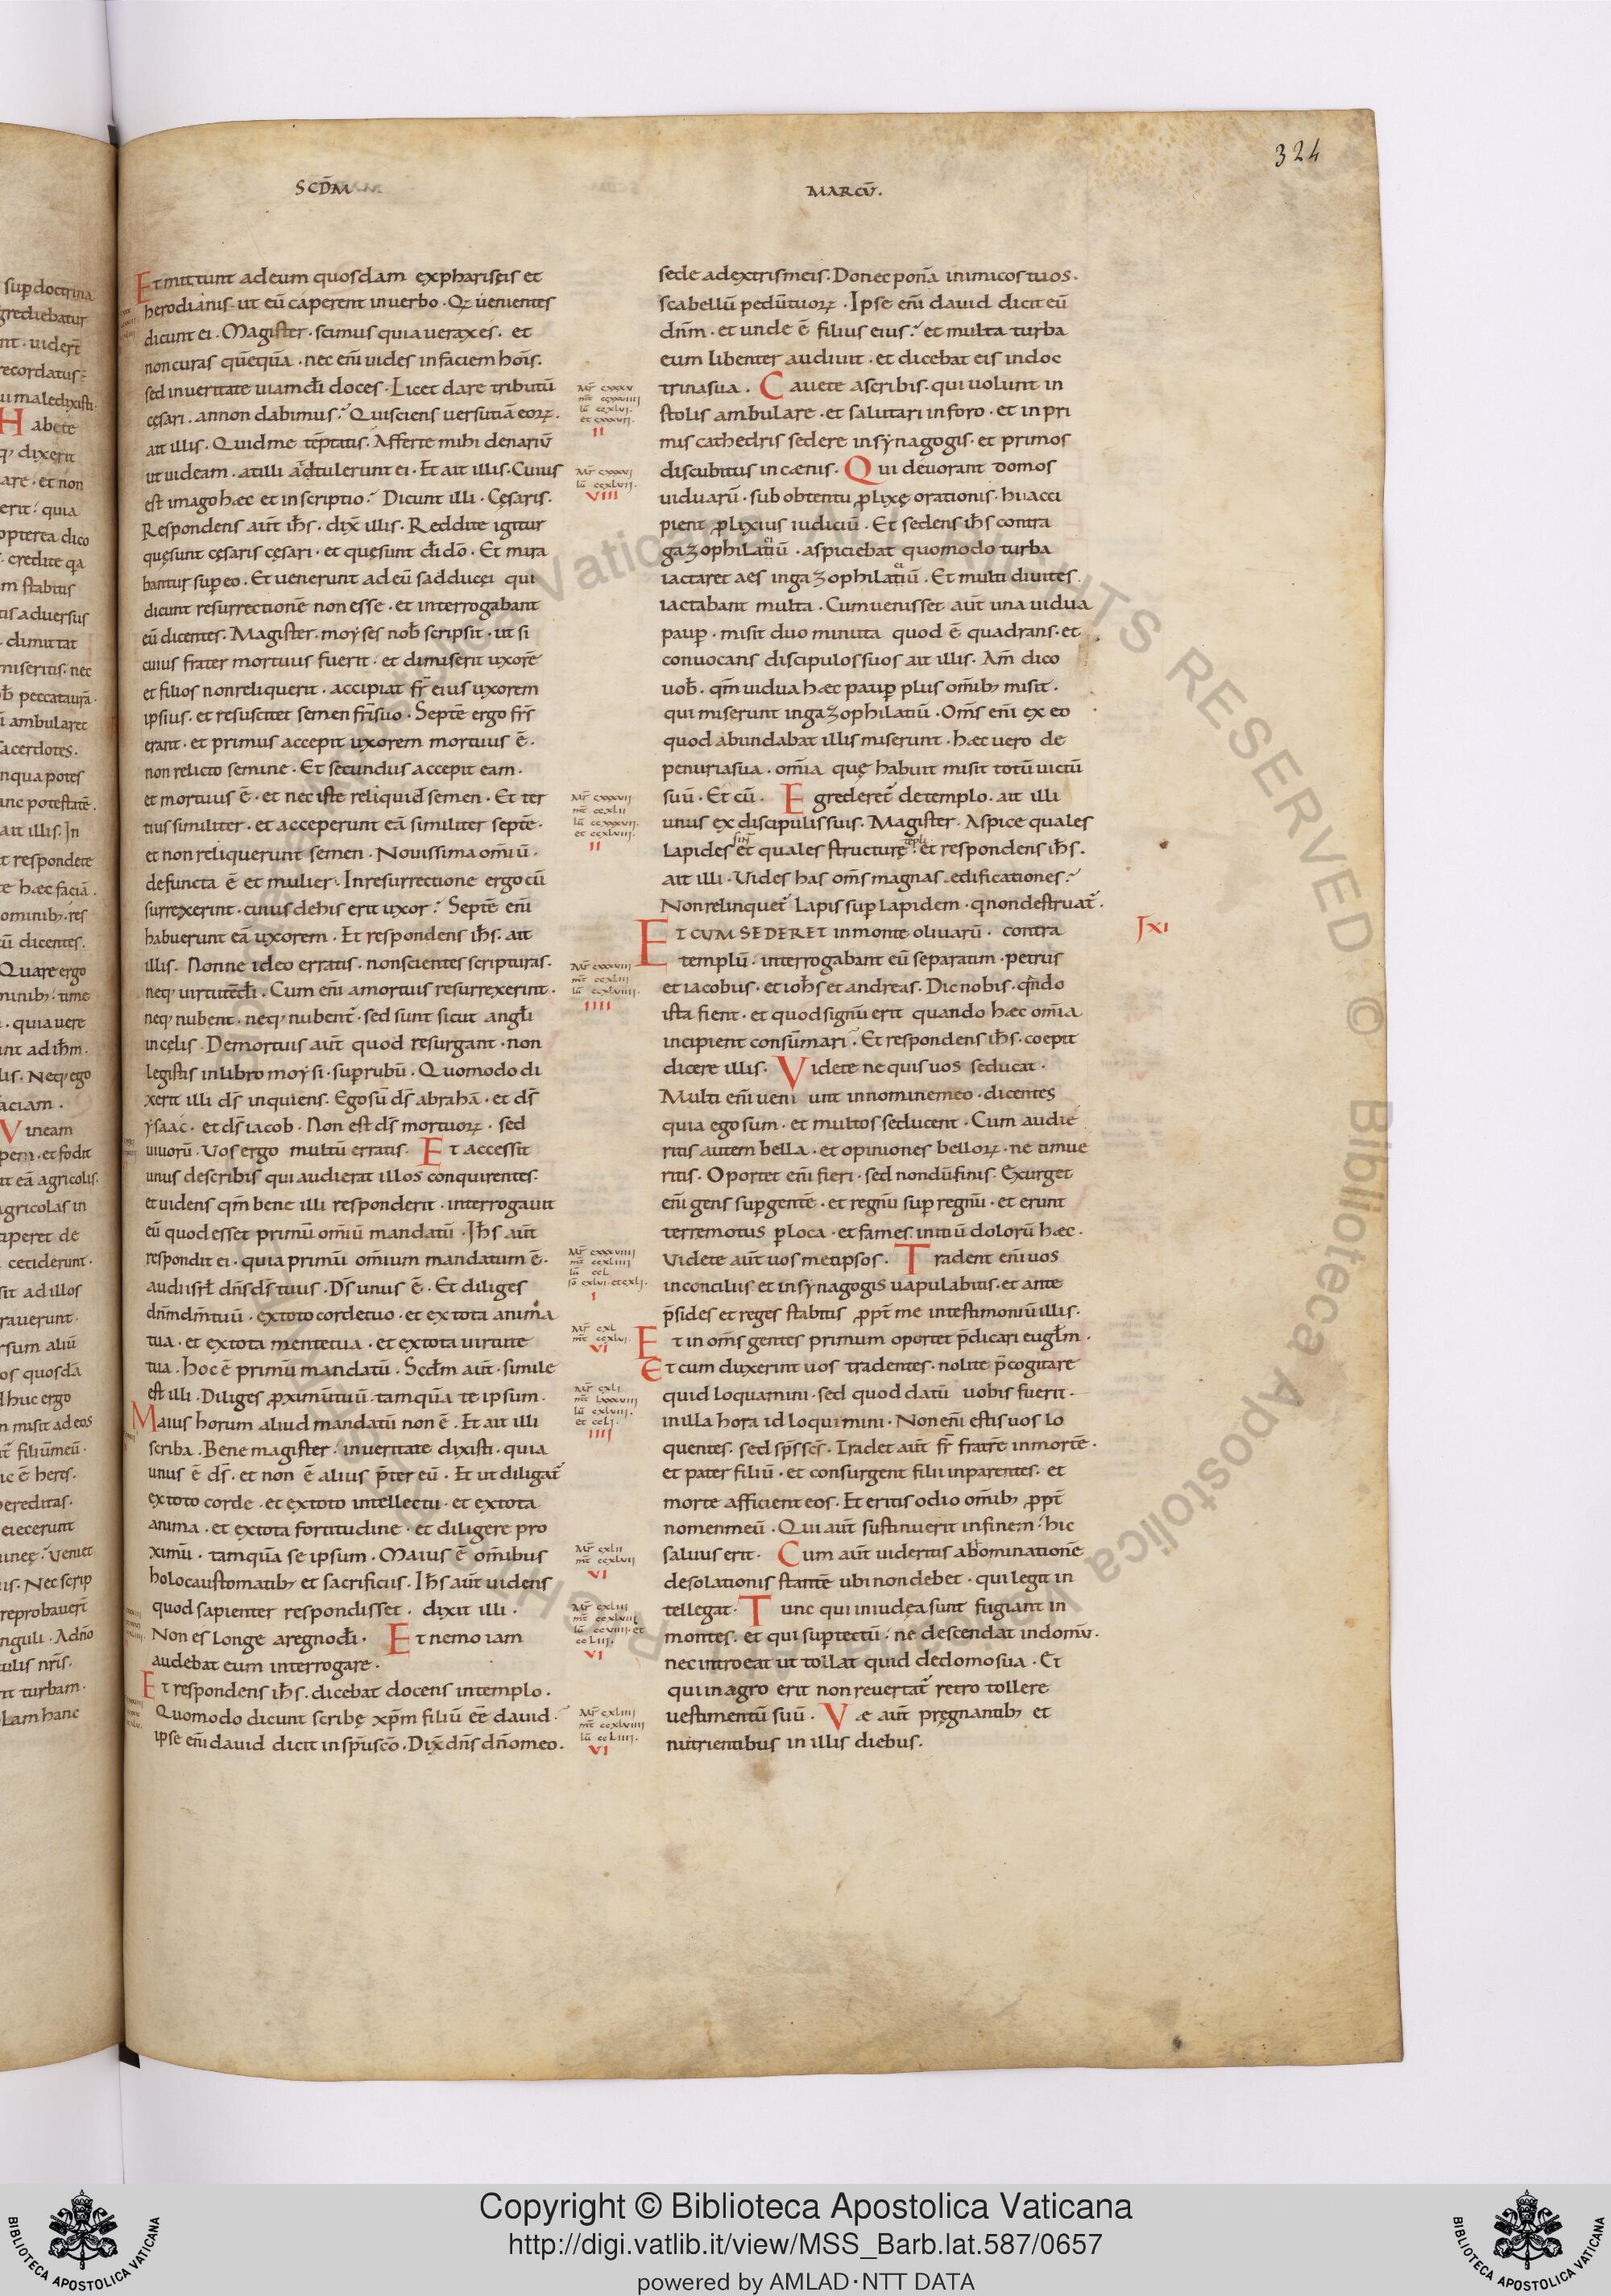 324
SCDM
MARCV̄.
Et mittunt ad eum quosdam ex phariseis et
herodianis. ut eū caperent in uerbo. Qui uenientes
dicunt ei. Magister. scimus quia uerax es. et
non curas quēquā. nec enī uides in faciem hoīs.
sed in ueritate uiam dī doces. Licet dare tributū
cęsari. an non dabimus? Qui sciens uersutiā eoꝝ.
ait illis. Quid me tēptatis. Afferte mihi denariū
ut uideam. at illi attulerunt ei. Et ait illis. Cuius
est imago hæc et inscriptio? Dicunt illi. Cęsaris.
Respondens aūt ihs. dix̄ illis. Reddite igitur
quę sunt cęsaris cęsari. et quę sunt dī dō. Et mira
bantur sup eo. Et uenerunt ad eū sadducęi qui
dicunt resurrectionē non esse. et interrogabant
eū dicentes. Magister. moyses nob scripsit. ut si
cuius frater mortuus fuerit. et dimiserit uxorē
et filios non reliquerit. accipiat fr̄ eius uxorem
ipsius. et resuscitet semen frī suo. Septē ergo frs̄
erant. et primus accepit uxorem mortuus ē.
non relicto semine. Et secundus accepit eam.
et mortuus ē. et nec iste reliquid semen. Et ter
tius similiter. et acceperunt eā similiter septē.
et non reliquerunt semen. Nouissima omīū.
defuncta ē et mulier. In resurrectione ergo cū
surrexerint. cuius de his erit uxor? Septē enī
habuerunt eā uxorem. Et respondens ihs. ait
illis. Nonne ideo erratis. non scientes scripturas.
neq; uirtutē dī. Cum enī a mortuis resurrexerint.
neq; nubent. neq; nubent̄. sed sunt sicut angli
in cęlis. De mortuis aūt quod resurgant. non
legistis in libro moysi. sup rubū. Quomodo di
xerit illi ds̄ inquiens. Ego sū ds̄ abrahā. et ds̄
ysaac. et ds̄ iacob. Non est ds̄ mortuoꝝ. sed
uiuorū. Vos ergo multū erratis. Et accessit
unus de scribis qui audierat illos conquirentes.
et uidens qm̄ bene illi responderit. interrogauit
eū quod esset primū omīū mandatū. Ihs aūt
respondit ei. quia primū omīum mandatum ē.
audi isrl̄ dns̄ ds̄ tuus. Ds̄ unus ē. Et diliges
dnm̄ dm̄ tuū. ex toto corde tuo. et ex tota anima
tua. et ex tota mente tua. et ex tota uirtute
tua. Hoc ē primū mandatū. Scdm aūt. simile
est illi. Diliges ꝓximū tuū. tamquā te ipsum.
Maius horum aliud mandatū non ē. Et ait illi
scriba. Bene magister. in ueritate dixisti. quia
unus ē ds̄. et non ē alius p̄ter eū. Et ut diligat̄
ex toto corde. et ex toto intellectu. et ex tota
anima. et ex tota fortitudine. et diligere pro
ximū. tamquā se ipsum. Maius ē omībus
holocaustomatib; et sacrificiis. Ihs aūt uidens
quod sapienter respondisset. dixit illi.
Non es longe a regno dī. Et nemo iam
audebat eum interrogare.
Et respondens ihs. dicebat docens in templo.
Quomodo dicunt scribę xpm̄ filiū eē dauid.
ipse enī dauid dicit in spū scō. Dix̄ dns̄ dno meo.
Mr̄ cxxxvi
VIII
II
IIII
I
VI
IIII
VI
VI
VI
sede a dextris meis. Donec ponā inimicos tuos.
scabellū pedū tuoꝝ. Ipse enī dauid dicit eū
dnm̄. et unde ē filius eius? et multa turba
eum libenter audiuit. et dicebat eis in doc
trina sua. Cauete a scribis. qui uolunt in
stolis ambulare. et salutari in foro. et in pri
mis cathedris sedere in synagogis. et primos
discubitus in cænis. Qui deuorant domos
uiduarū. sub obtentu ꝓlixę orationis. hi acci
pient ꝓlixius iudiciū. Et sedens ihs contra
gazophilatiū. aspiciebat quomodo turba
iactaret aes in gazophilatiū. Et multi diuites
iactabant multa. Cum uenisset aūt una uidua
paup. misit duo minuta quod ē quadrans. et
conuocans discipulos suos ait illis. Am̄ dico
uob. qm̄ uidua hæc paup plus omīb; misit.
qui miserunt in gazophilatiū. Oms̄ enī ex eo
quod abundabat illis miserunt. hæc uero de
penuria sua. omīa quę habuit misit totū uictū
suū. Et cū. Egrederet̄ de templo. ait illi
unus ex discipulis suis. Magister. Aspice quales
lapides et quales structurę. et respondens ihs.
ait illi. Vides has oms̄ magnas edificationes?
Non relinquet̄ lapis sup lapidem. q non destruat̄.
ET CVM SEDERET in monte oliuarū. contra
templū. interrogabant eū separatim. petrus
et iacobus. et iohs et andreas. Dic nobis. qn̄do
ista fient. et quod signū erit quando hæc omīa
incipient consūmari? Et respondens ihs. coepit
dicere illis. Videte ne quis uos seducat.
Multi enī ueni unt in nomine meo. dicentes
quia ego sum. et multos seducent. Cum audie
ritis autem bella. et opiniones belloꝝ. ne timue
ritis. Oportet enī fieri. sed nondū finis. Exurget
enī gens sup gentē. et regnū sup regnū. et erunt
terremotus ꝑ loca. et fames. initiū dolorū hæc.
Videte aūt uosmetipsos. Tradent enī uos
in conciliis et in synagogis uapulabitis. et ante
p̄sides et reges stabitis ꝓpt̄ me in testimoniū illis.
Et in oms̄ gentes primum oportet p̄dicari euglm̄.
Et cum duxerint uos tradentes. nolite p̄cogitare
quid loquamini. sed quod datū uobis fuerit.
in illa hora id loquimini. Non enī estis uos lo
quentes. sed sps̄ scs̄. Tradet aūt fr̄ fratrē in mortē.
et pater filiū. et consurgent filii in parentes. et
morte afficient eos. Et eritis odio omīb; ꝓpt̄
nomen meū. Qui aūt sustinuerit in finem? hic
saluus erit. Cum aūt uideritis abominationē
desolationis stantē ubi non debet. qui legit in
tellegat. Tunc qui in iudęa sunt fugiant in
montes. et qui sup tectū. ne descendat in domū.
nec introeat ut tollat quid de domo sua. Et
qui in agro erit non reuertat̄ retro tollere
uestimentū suū. Væ aūt pręgnantib; et
nutrientibus in illis diebus.
XI
Copyright © Biblioteca Apostolica Vaticana
http://digi.vatlib.it/view/MSS_Barb.lat.587/0657
powered by AMLAD·NTT DATA
BIBLIOTECA APOSTOLICA VATICANA
BIBLIOTECA APOSTOLICA VATICANA